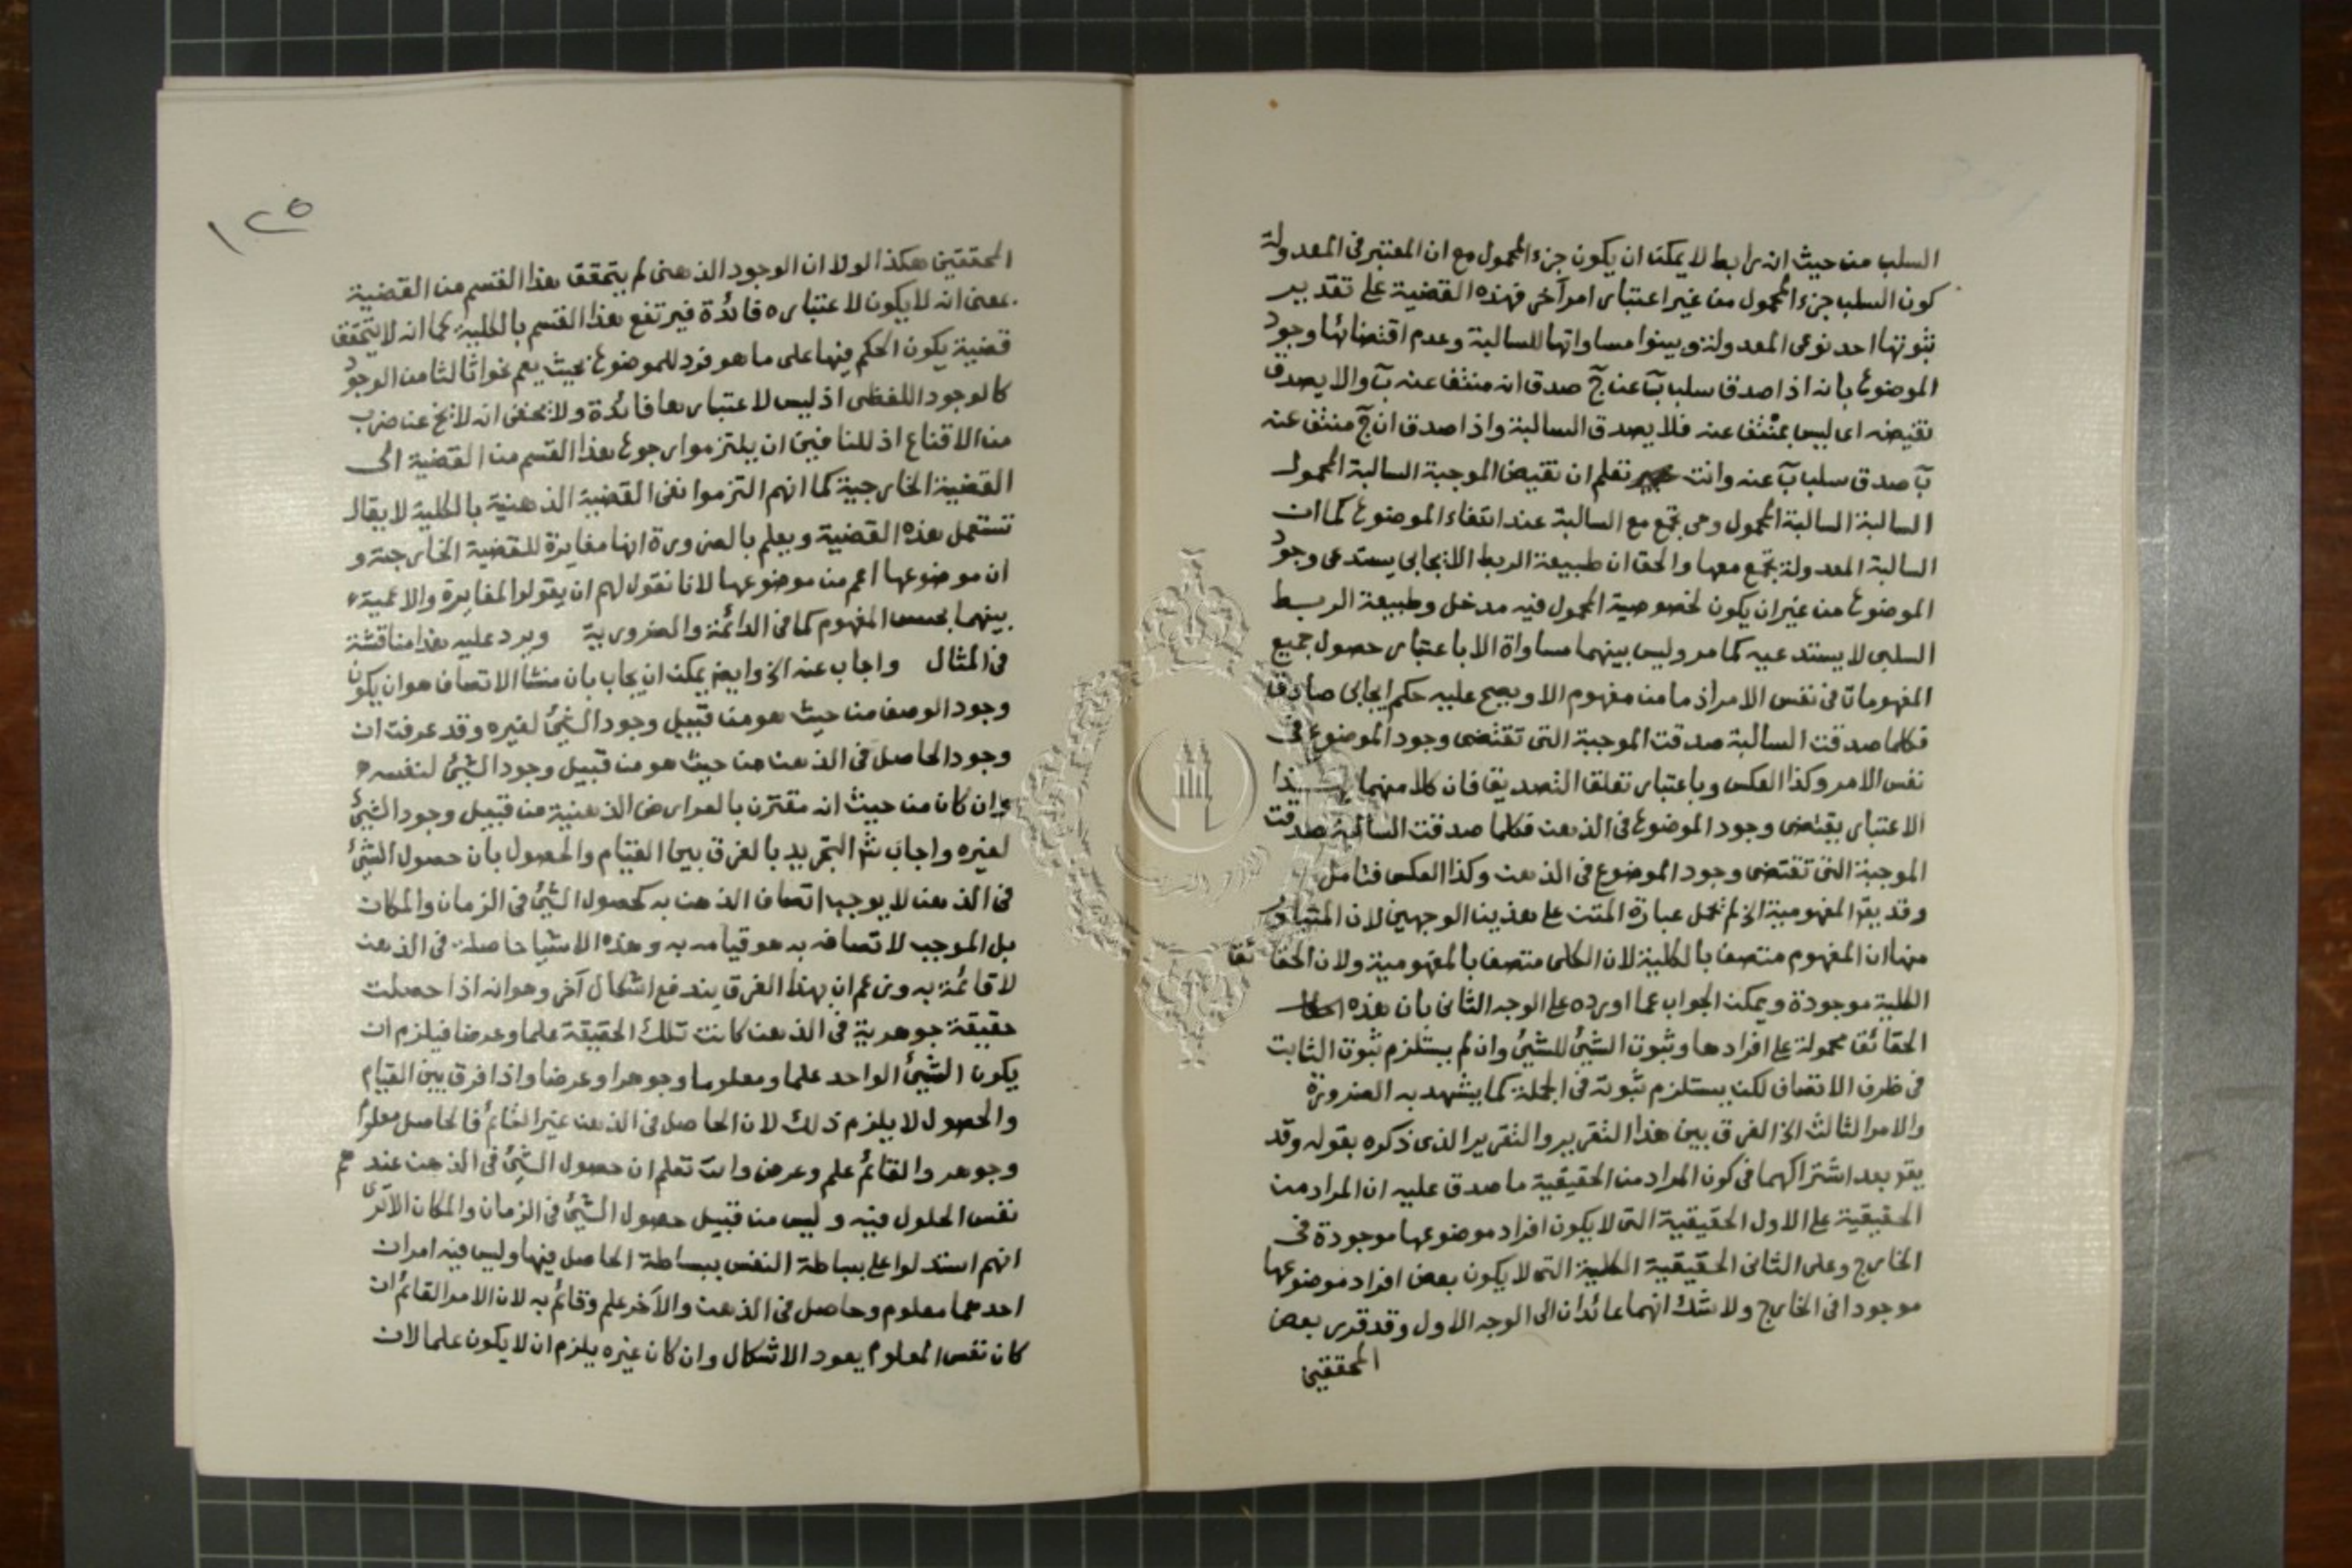 السلب من حيث انه رابط لا يمكن ان يكون جزء المحمول مع ان المعتبر فى المعدولة
كون السلب جزء المحمول من غير اعتبار امر آخر فهذه القضية على تقدير
ثبوتها احد نوعى المعدولة وبينوا مساواتها للسالبة وعدم اقتضائها وجود
الموضوع بانه اذا صدق سلب بٓ عن جٓ صدق انه منتف عنه بٓ والا يصدق
نقيضه اى ليس بمنتف عنه فلا يصدق السالبة واذا صدق ان جٓ منتف عنه
بٓ صدق سلب بٓ عنه وانت تعلم ان نقيض الموجبة السالبة المحمول
السالبة السالبة المحمول وهى تجتمع مع السالبة عند انتفاء الموضوع كما ان
السالبة المعدولة تجتمع معها والحق ان طبيعة الربط الايجابى يستدعى وجود
الموضوع من غير ان يكون لخصوصية المحمول فيه مدخل وطبيعة الربط
السلبى لا يستدعيه كما مر وليس بينهما مساواة الا باعتبار حصول جميع
المفهومات فى نفس الامر اذ ما من مفهوم الا ويصح عليه حكم ايجابى صادق
فكلما صدقت السالبة صدقت الموجبة التى تقتضى وجود الموضوع فى
نفس الامر وكذا العكس وباعتبار تعلق التصديق فان كلا منهما بهذا
الاعتبار يقتضى وجود الموضوع فى الذهن فكلما صدقت السالبة صدقت
الموجبة التى تقتضى وجود الموضوع فى الذهن وكذا العكس فتامل
وقد يقر المفهومية الخ لم تحمل عبارة المتن على هذين الوجهين لان المتبادر
منها ان المفهوم متصف بالكلية لان الكلى متصف بالمفهومية ولان الحقائق
الكلية موجودة ويمكن الجواب عما اورده على الوجه الثانى بان هذه
الحقائق محمولة على افرادها وثبوت الشئ للشئ وان لم يستلزم ثبوت الثابت
فى ظرف الاتصاف لكن يستلزم ثبوته فى الجملة كما يشهد به الضرورة
والامر الثالث الخ الفرق بين هذا التقرير والتقرير الذى ذكره بقوله وقد
يقر بعد اشتراكهما فى كون المراد من الحقيقية ما صدق عليه ان المراد من
الحقيقية على الاول الحقيقية التى لا يكون افراد موضوعها موجودة فى
الخارج وعلى الثانى الحقيقية الكلية التى لا يكون بعض افراد موضوعها
موجودا فى الخارج ولا شك انهما عائدان الى الوجه الاول وقد قرر بعض
المحققين
١٢٥
المحققين هكذا لولا ان الوجود الذهنى لم يتحقق هذا القسم من القضية
بمعنى انه لا يكون لاعتباره فائدة فيرتفع هذا القسم بالكلية كما انه لا يتحقق
قضية يكون الحكم فيها على ما هو فرد للموضوع بحيث يعم نحوا ثالثا من الوجود
كالوجود اللفظى اذ ليس لاعتبارها فائدة ولا يخفى انه لا يخ عن ضرب
من الاقناع اذ للنافين ان يلتزموا رجوع هذا القسم من القضية الى
القضية الخارجية كما انهم التزموا نفى القضية الذهنية بالكلية لا يقال
تستعمل هذه القضية ويعلم بالضرورة انها مغايرة للقضية الخارجية و
ان موضوعها اعم من موضوعها لانا نقول لهم ان يقولوا المغايرة والاعمية
بينهما بحسب المفهوم كما فى الدائمة والضرورية ويرد عليه هذا مناقشة
فى المثال واجاب عنه الخ وايضا يمكن ان يجاب بان منشا الاتصاف هو ان يكون
وجود الوصف من حيث هو من قبيل وجود الشئ لغيره وقد عرفت ان
وجود الحاصل فى الذهن من حيث هو من قبيل وجود الشئ لنفسه
وان كان من حيث انه مقترن بالعوارض الذهنية من قبيل وجود الشئ
لغيره واجاب التجريد بالفرق بين القيام والحصول بان حصول الشئ
فى الذهن لا يوجب اتصاف الذهن به كحصول الشئ فى الزمان والمكان
بل الموجب لاتصافه به هو قيامه به وهذه الاشيا حاصلة فى الذهن
لا قائمة به وزعم ان بهذا الفرق يندفع اشكال آخر وهو انه اذا حصلت
حقيقة جوهرية فى الذهن كانت تلك الحقيقة علما وعرضا فيلزم ان
يكون الشئ الواحد علما ومعلوما وجوهرا وعرضا واذا فرق بين القيام
والحصول لا يلزم ذلك لان الحاصل فى الذهن غير القائم فالحاصل معلوم
وجوهر والقائم علم وعرض وانت تعلم ان حصول الشئ فى الذهن عندهم
نفس الحلول فيه وليس من قبيل حصول الشئ فى الزمان والمكان الا ترى
انهم استدلوا على بساطة النفس ببساطة الحاصل فيها وليس فيه امران
احدهما معلوم وحاصل فى الذهن والآخر علم وقائم به لان الامر القائم ان
كان نفس المعلوم يعود الاشكال وان كان غيره يلزم ان لا يكون علما لان